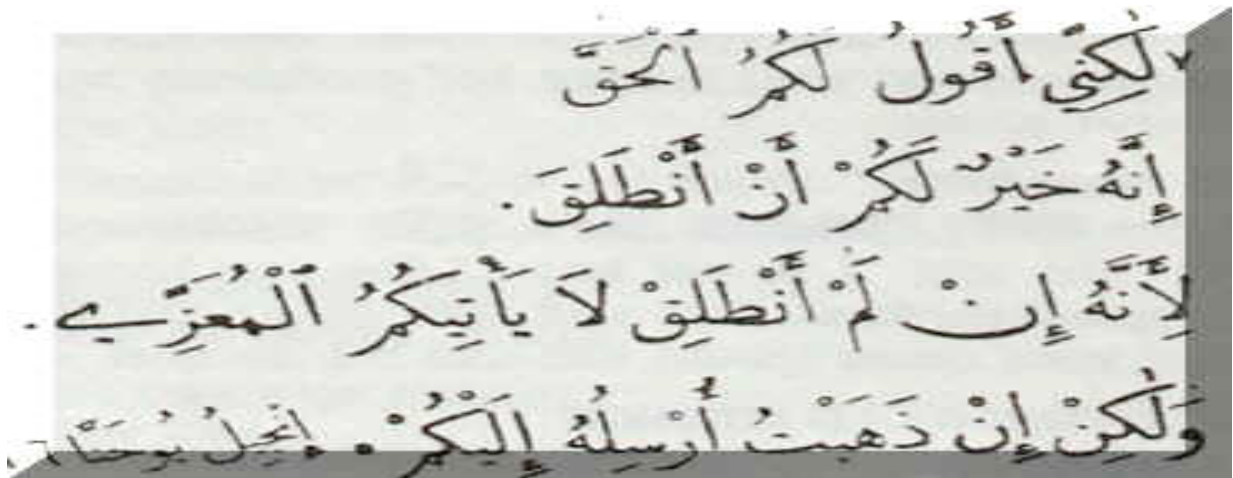 ٧ لَٰكِنِّي أَقُولُ لَكُمُ ٱلْحَقَّ
إِنَّهُ خَيْرٌ لَكُمْ أَنْ أَنْطَلِقَ.
لِأَنَّهُ إِنْ لَمْ أَنْطَلِقْ لَا يَأْتِيكُمُ ٱلْمُعَزِّي.
وَلَٰكِنْ إِنْ ذَهَبْتُ أُرْسِلُهُ إِلَيْكُمْ. إنجيلُ يُوحَنَّا